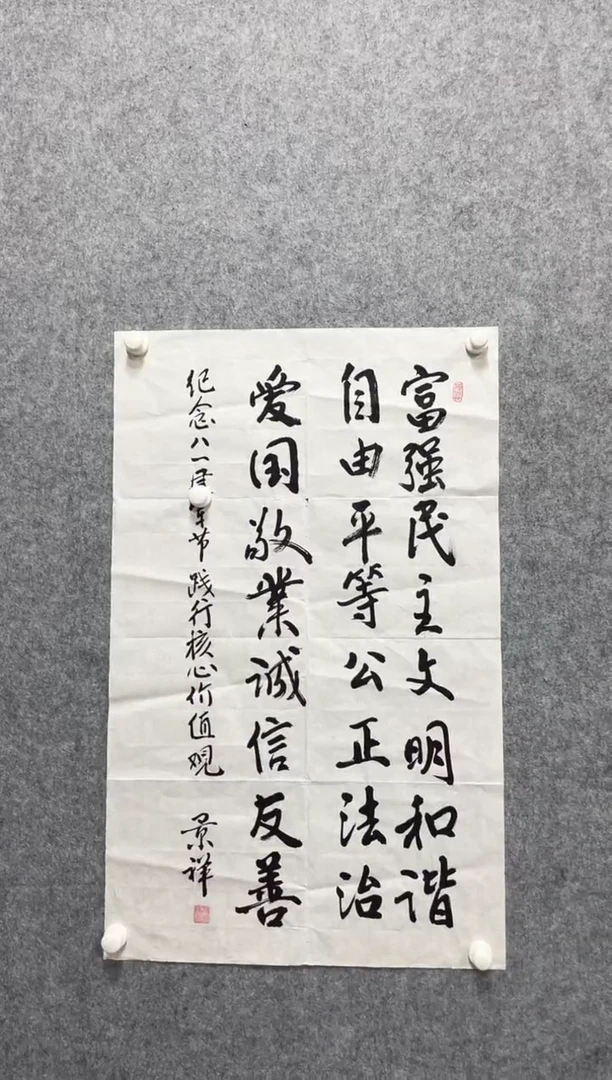 富强民主文明和谐
自由平等公正法治
爱国敬業诚信友善
纪念八一建军节 践行核心价值观
景祥